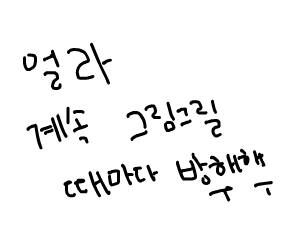 얼라
계속 그림그릴
때마다 방해해